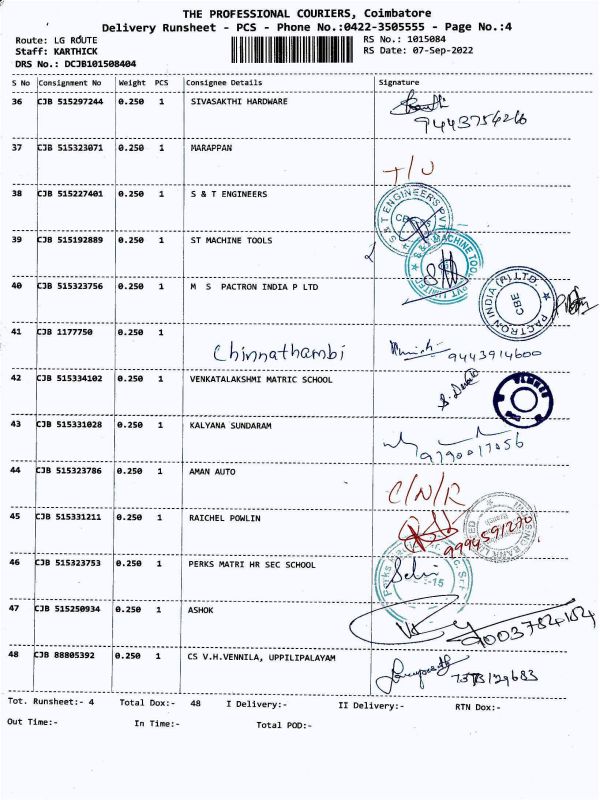 THE PROFESSIONAL COURIERS, Coimbatore
Delivery Runsheet - PCS - Phone No.:0422-3505555 - Page No.:4
Route: LG ROUTE RS No.: 1015084
Staff: KARTHICK RS Date: 07-Sep-2022
DRS No.: DCJB101508404
S No Consignment No Weight PCS Consignee Details Signature
36 CJB 515297244 0.250 1 SIVASAKTHI HARDWARE
9443754266
37 CJB 515323071 0.250 1 MARAPPAN
T/U
38 CJB 515227401 0.250 1 S & T ENGINEERS
S & T ENGINEERS PVT
39 CJB 515192889 0.250 1 ST MACHINE TOOLS
MACHINE TOOL PVT LIMITED
40 CJB 515323756 0.250 1 M S PACTRON INDIA P LTD
PACTRON INDIA (P) LTD. CBE
41 CJB 1177750 0.250 1
Chinnathambi 9443914600
42 CJB 515334102 0.250 1 VENKATALAKSHMI MATRIC SCHOOL
43 CJB 515331028 0.250 1 KALYANA SUNDARAM
9790017056
44 CJB 515323786 0.250 1 AMAN AUTO
C/N/R
45 CJB 515331211 0.250 1 RAICHEL POWLIN
9994591270
46 CJB 515323753 0.250 1 PERKS MATRI HR SEC SCHOOL
Selvi
47 CJB 515250934 0.250 1 ASHOK
48 CJB 88805392 0.250 1 CS V.H.VENNILA, UPPILIPALAYAM
7373129683
Tot. Runsheet:- 4 Total Dox:- 48 I Delivery:- II Delivery:- RTN Dox:-
Out Time:- In Time:- Total POD:-